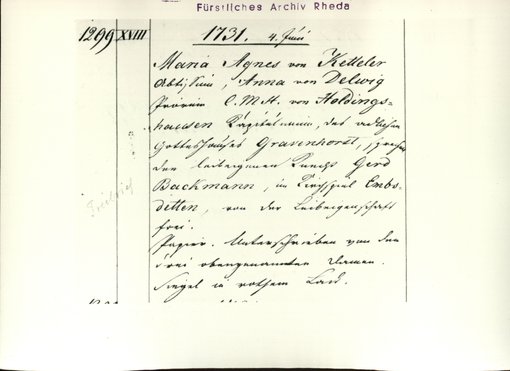 Fürstliches Archiv Rheda
1299 XVIII 1731. 4. Juni
Maria Agnes von Ketteler
Abtissin, Anna von Delwig
Priorin C. M. A. von Holdings=
hausen Kapitularin, des adlichen
Gotteshauses Gravenhorst, sprechen
den leibeigenen Knecht Gerd
Backmann, im Kirchspiel Embs=
detten, von der Leibeigenschaft
frei.
Freibrief
Papier. Unterschrieben von den
drei obengenannten Damen.
Siegel in rothem Lack.